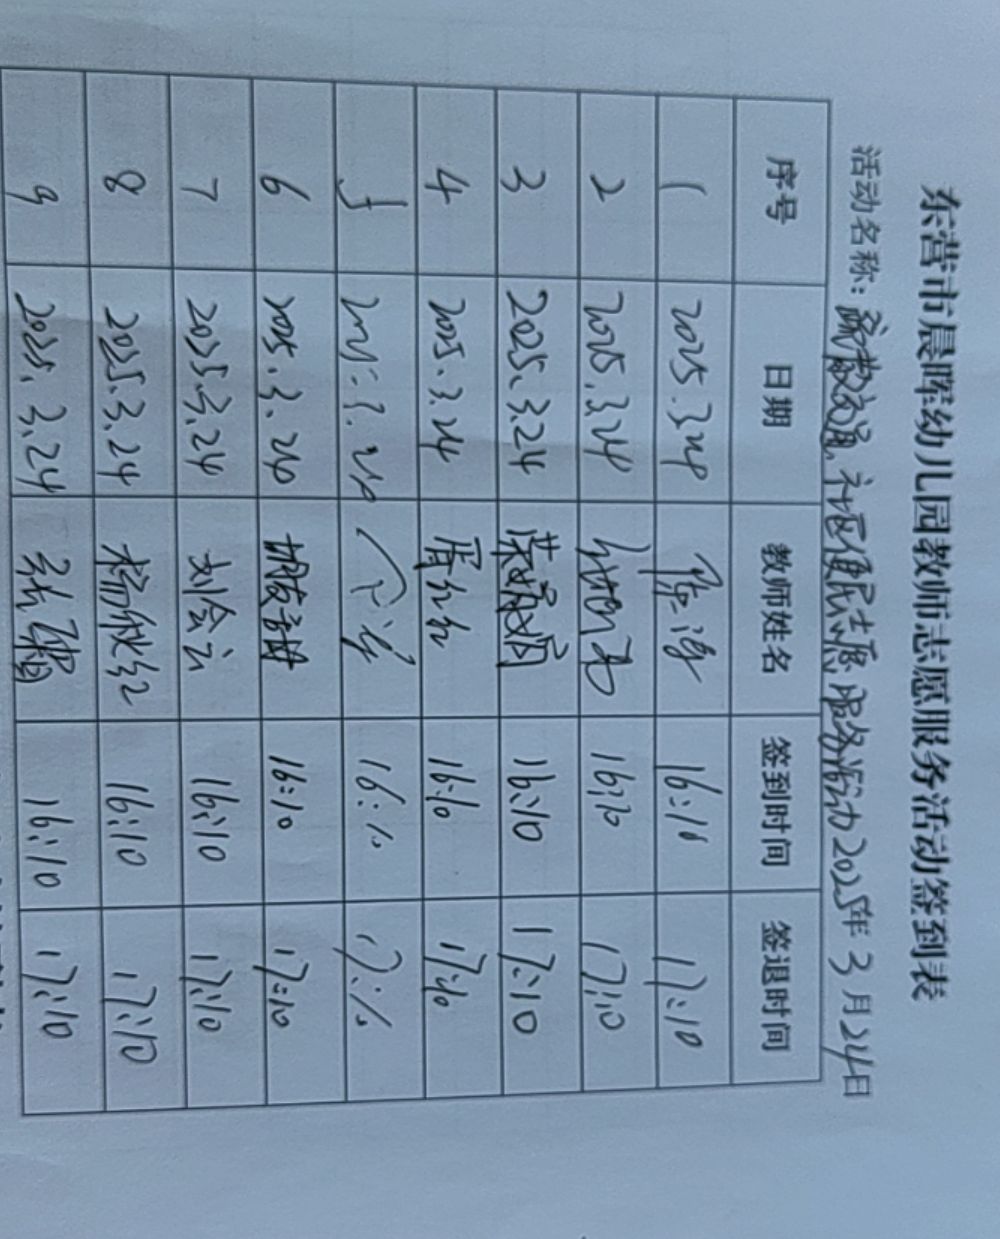 东营市晨晖幼儿园教师志愿服务活动签到表
活动名称: 交通 社区便民志愿服务活动 2025年 3 月 24 日
序号 日期 教师姓名 签到时间 签退时间
1 2025.3.24 16:10 17:10
2 2025.3.24 16:10 17:10
3 2025.3.24 16:10 17:10
4 2025.3.24 胥红红 16:10 17:10
5 2025.3.24 16:10 17:10
6 2025.3.24 16:10 17:10
7 2025.3.24 刘会云 16:10 17:10
8 2025.3.24 杨秋红 16:10 17:10
9 2025.3.24 16:10 17:10